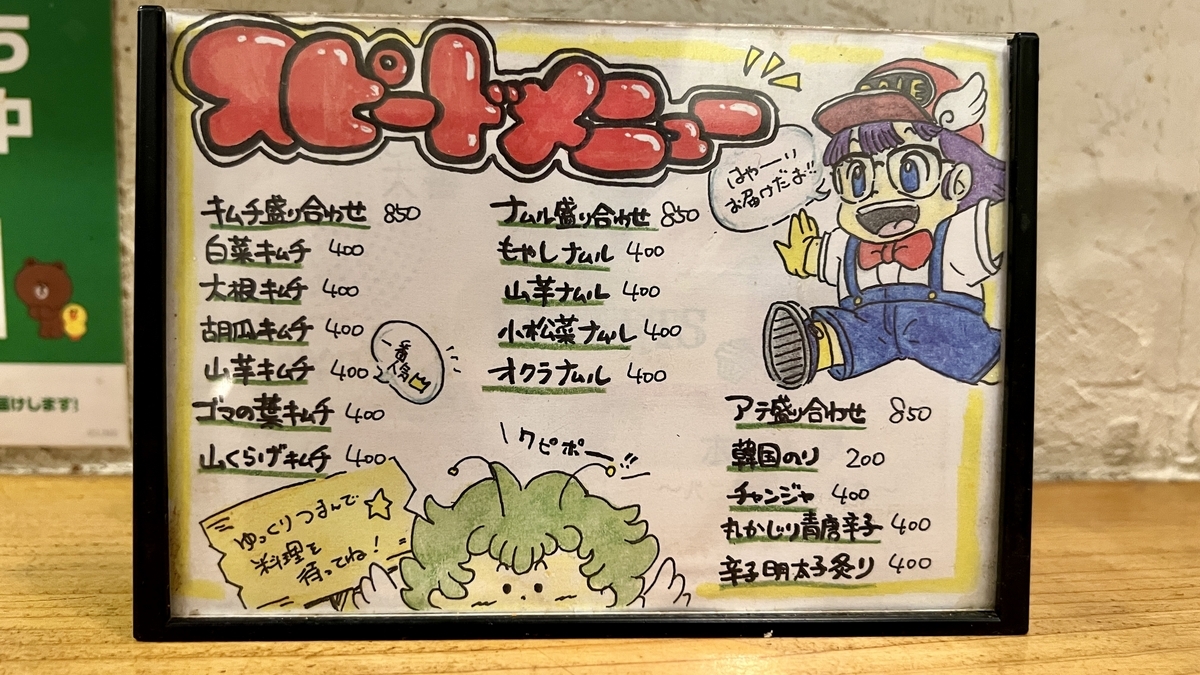 スピードメニュー
はやーい
お届けだお!!
キムチ盛り合わせ 850
白菜キムチ 400
大根キムチ 400
胡瓜キムチ 400
山芋キムチ 400
ゴマの葉キムチ 400
山くらげキムチ 400
一番人気
ナムル盛り合わせ 850
もやしナムル 400
山芋ナムル 400
小松菜ナムル 400
オクラナムル 400
アテ盛り合わせ 850
韓国のり 200
チャンジャ 400
丸かじり青唐辛子 400
辛子明太子炙り 400
クピポー!!
ゆっくりつまんで
料理を
待ってね!
中
届けします!